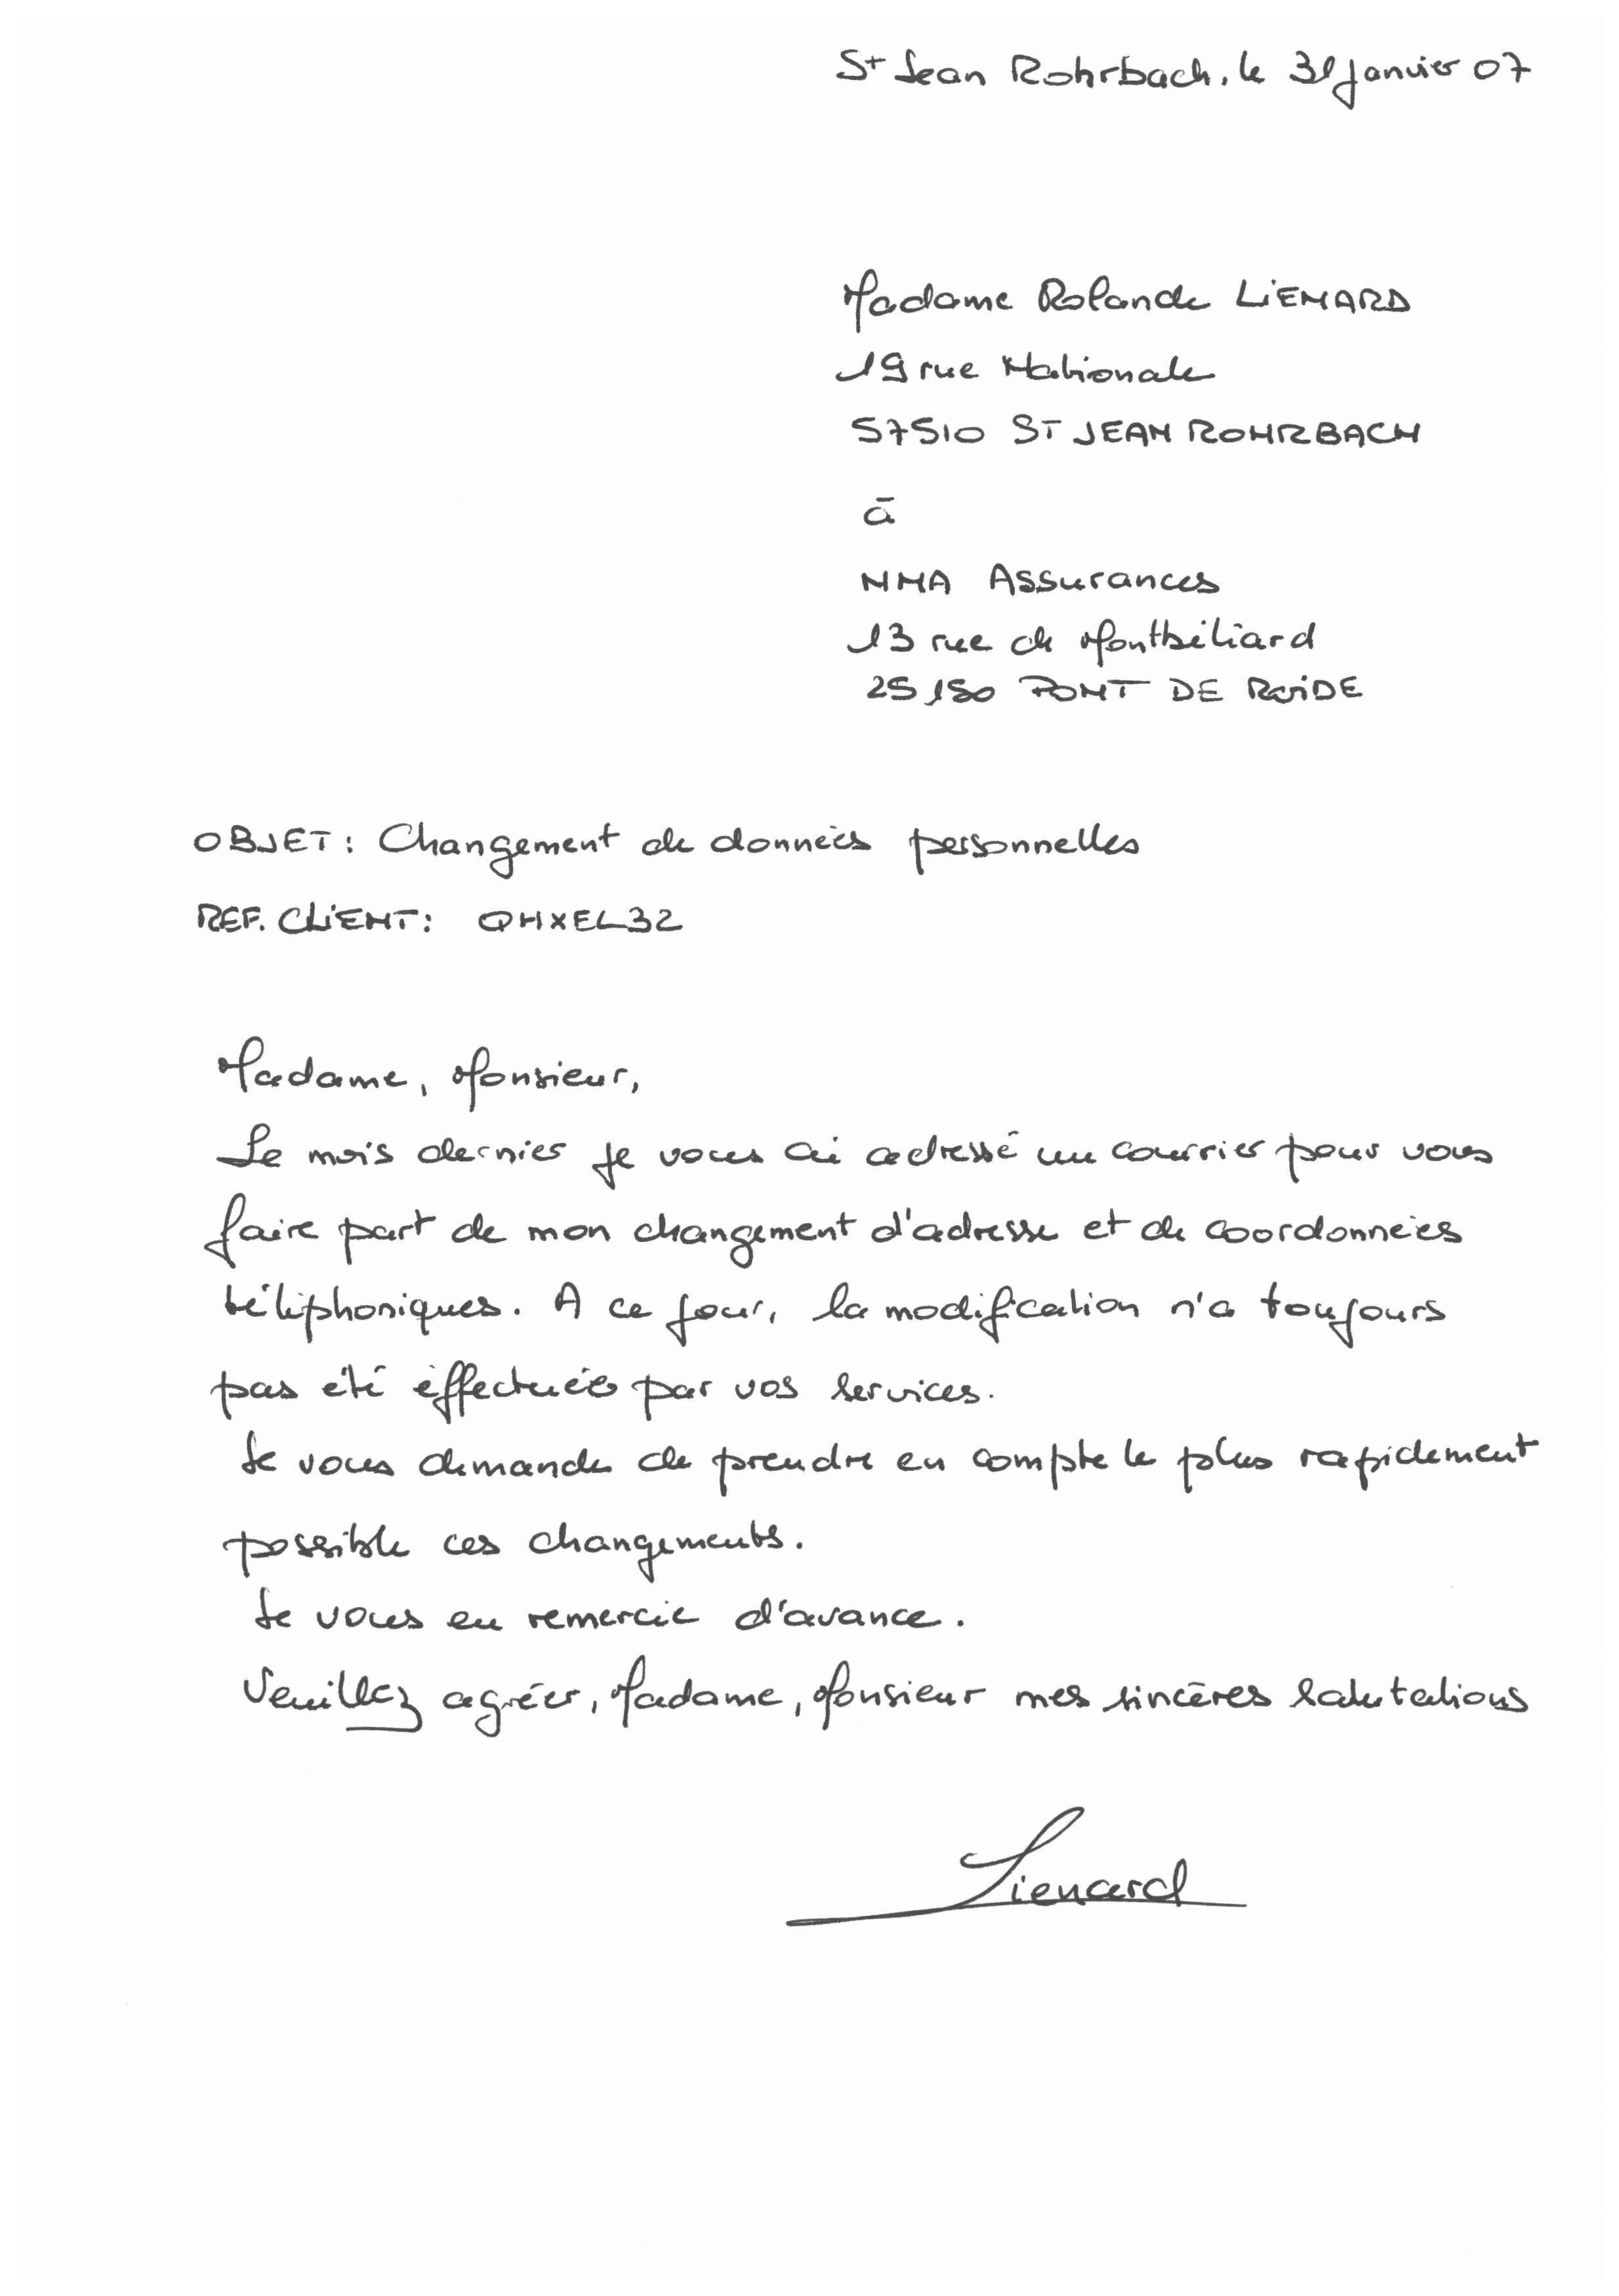 St Jean Rohrbach, le 31 janvier 07
Madame Rolande LIENARD
19 rue Nationale
57510 ST JEAN ROHRBACH
à
NMA Assurances
13 rue de Montbéliard
25150 PONT DE ROIDE
OBJET : Changement de données personnelles
REF. CLIENT : QHXEL32
Madame, Monsieur,
Le mois dernier je vous ai adressé un courrier pour vous
faire part de mon changement d'adresse et de coordonnées
téléphoniques. A ce jour, la modification n'a toujours
pas été effectuée par vos services.
Je vous demande de prendre en compte le plus rapidement
possible ces changements.
Je vous en remercie d'avance.
Veuillez agréer, Madame, Monsieur mes sincères salutations
Lienard